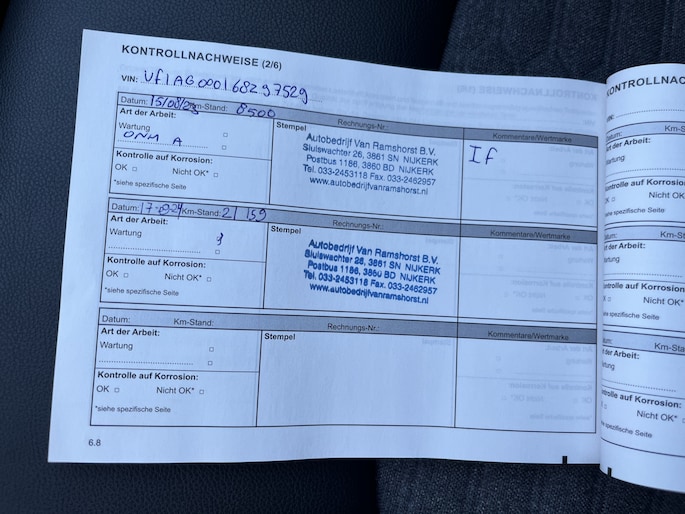 KONTROLLNACHWEISE (2/6)
VIN: VF1AG000168297529
Datum: 15/08/23 Km-Stand: 8500
Rechnungs-Nr.:
Kommentare/Wertmarke
Art der Arbeit:
Wartung
ONH A
Stempel
Autobedrijf Van Ramshorst B.V.
Sluiswachter 26, 3861 SN NIJKERK
Postbus 1186, 3860 BD NIJKERK
Tel. 033-2453118 Fax. 033-2462957
www.autobedrijfvanramshorst.nl
Kontrolle auf Korrosion:
OK □ Nicht OK* □
*siehe spezifische Seite
Datum: Km-Stand: 21 159
Rechnungs-Nr.:
Kommentare/Wertmarke
Art der Arbeit:
Wartung
Stempel
Autobedrijf Van Ramshorst B.V.
Sluiswachter 26, 3861 SN NIJKERK
Postbus 1186, 3860 BD NIJKERK
Tel. 033-2453118 Fax. 033-2462957
www.autobedrijfvanramshorst.nl
Kontrolle auf Korrosion:
OK □ Nicht OK* □
*siehe spezifische Seite
Datum: Km-Stand:
Rechnungs-Nr.:
Kommentare/Wertmarke
Art der Arbeit:
Wartung □
Stempel
Kontrolle auf Korrosion:
OK □ Nicht OK* □
*siehe spezifische Seite
6.8
KONTROLLNAC
Km-S
Art der Arbeit:
Wartung
Kontrolle auf Korro
Nicht OK*
*siehe spezifische Seite
Km-St
Art der Arbeit:
Kontrolle auf Korro
Nicht OK*
Km-St
Kontrolle auf Korro
Nicht OK*